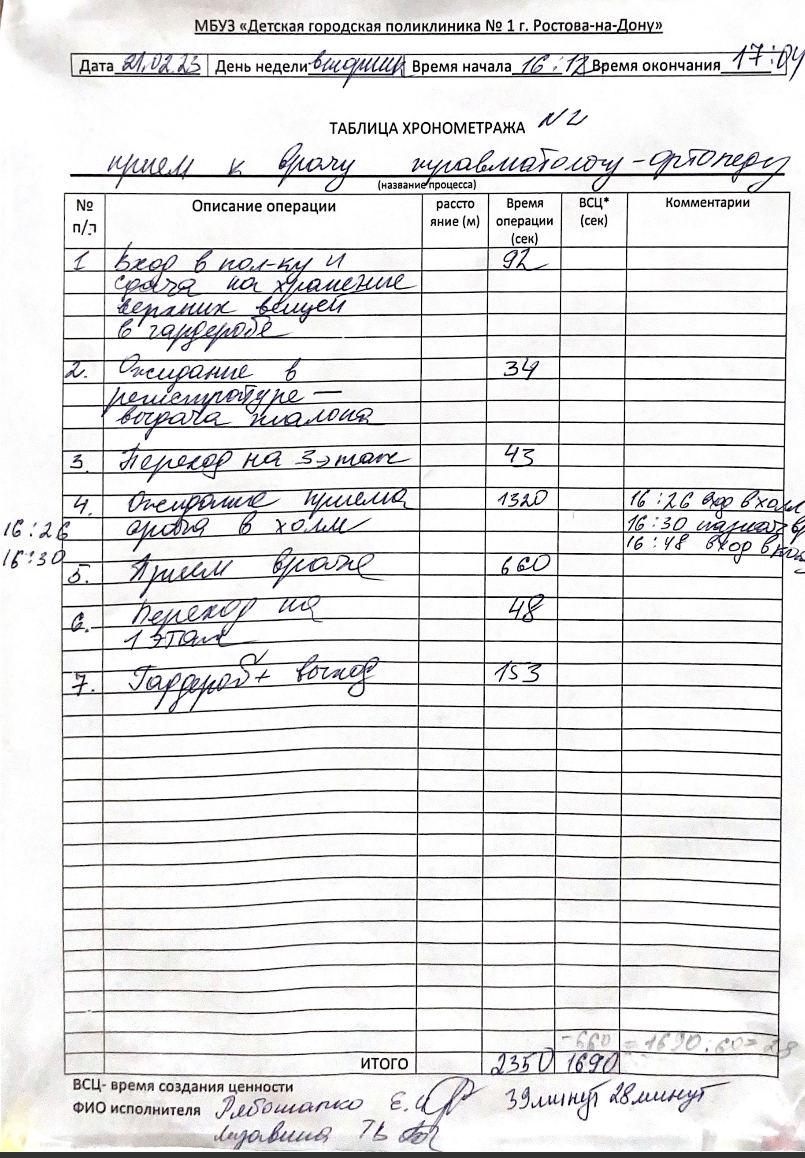 МБУЗ «Детская городская поликлиника № 1 г. Ростова-на-Дону»
Дата 21.02.23 День недели вторник Время начала 16:12 Время окончания 17:04
ТАБЛИЦА ХРОНОМЕТРАЖА №2
прием к врачу травматологу-ортопеду
(название процесса)
№ п/п Описание операции рассто яние (м) Время операции (сек) ВСЦ* (сек) Комментарии
1 Вход в пол-ку и 92
сдача на хранение
верхних вещей
в гардеробе
2. Ожидание в 34
регистратуре —
выдача талона
3. Переход на 3 этаж 43
4. Ожидание приема 1320 16:26 вход в холл
16:26 врача в холле 16:30
16:30 16:48 вход в
5. Прием врача 660
6. Переход на 48
1 этаж
7. Гардероб + выход 153
-660 = 1690:60=28
ИТОГО 2350 1690
ВСЦ- время создания ценности
ФИО исполнителя Е.И. 39минут 28минут